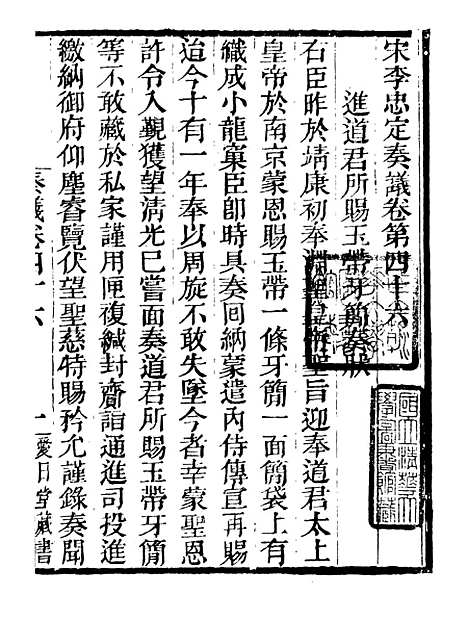 宋李忠定奏議卷第四十六
進道君所賜玉帶牙簡奏狀
右臣昨於靖康初奉淵聖皇帝聖旨迎奉道君太上
皇帝於南京蒙恩賜玉帶一條牙簡一面簡袋上有
織成小龍窠臣卽時具奏回納蒙遣内侍傳宣再賜
迨今十有一年奉以周旋不敢失墜今者幸蒙聖恩
許令入覲獲望清光已嘗面奏道君所賜玉帶牙簡
等不敢藏於私家謹用匣複緘封齎詣通進司投進
繳納御府仰塵睿覽伏望聖慈特賜矜允謹錄奏聞
奏議卷四十六
一
愛日堂藏書
國立清華大
學圖書館藏